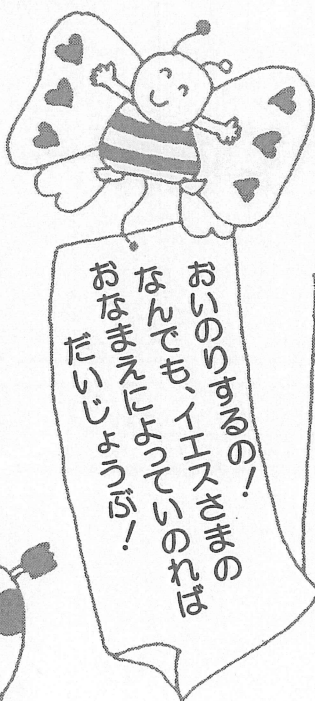 おいのりするの！
なんでも、イエスさまの
おなまえによっていのれば
だいじょうぶ！